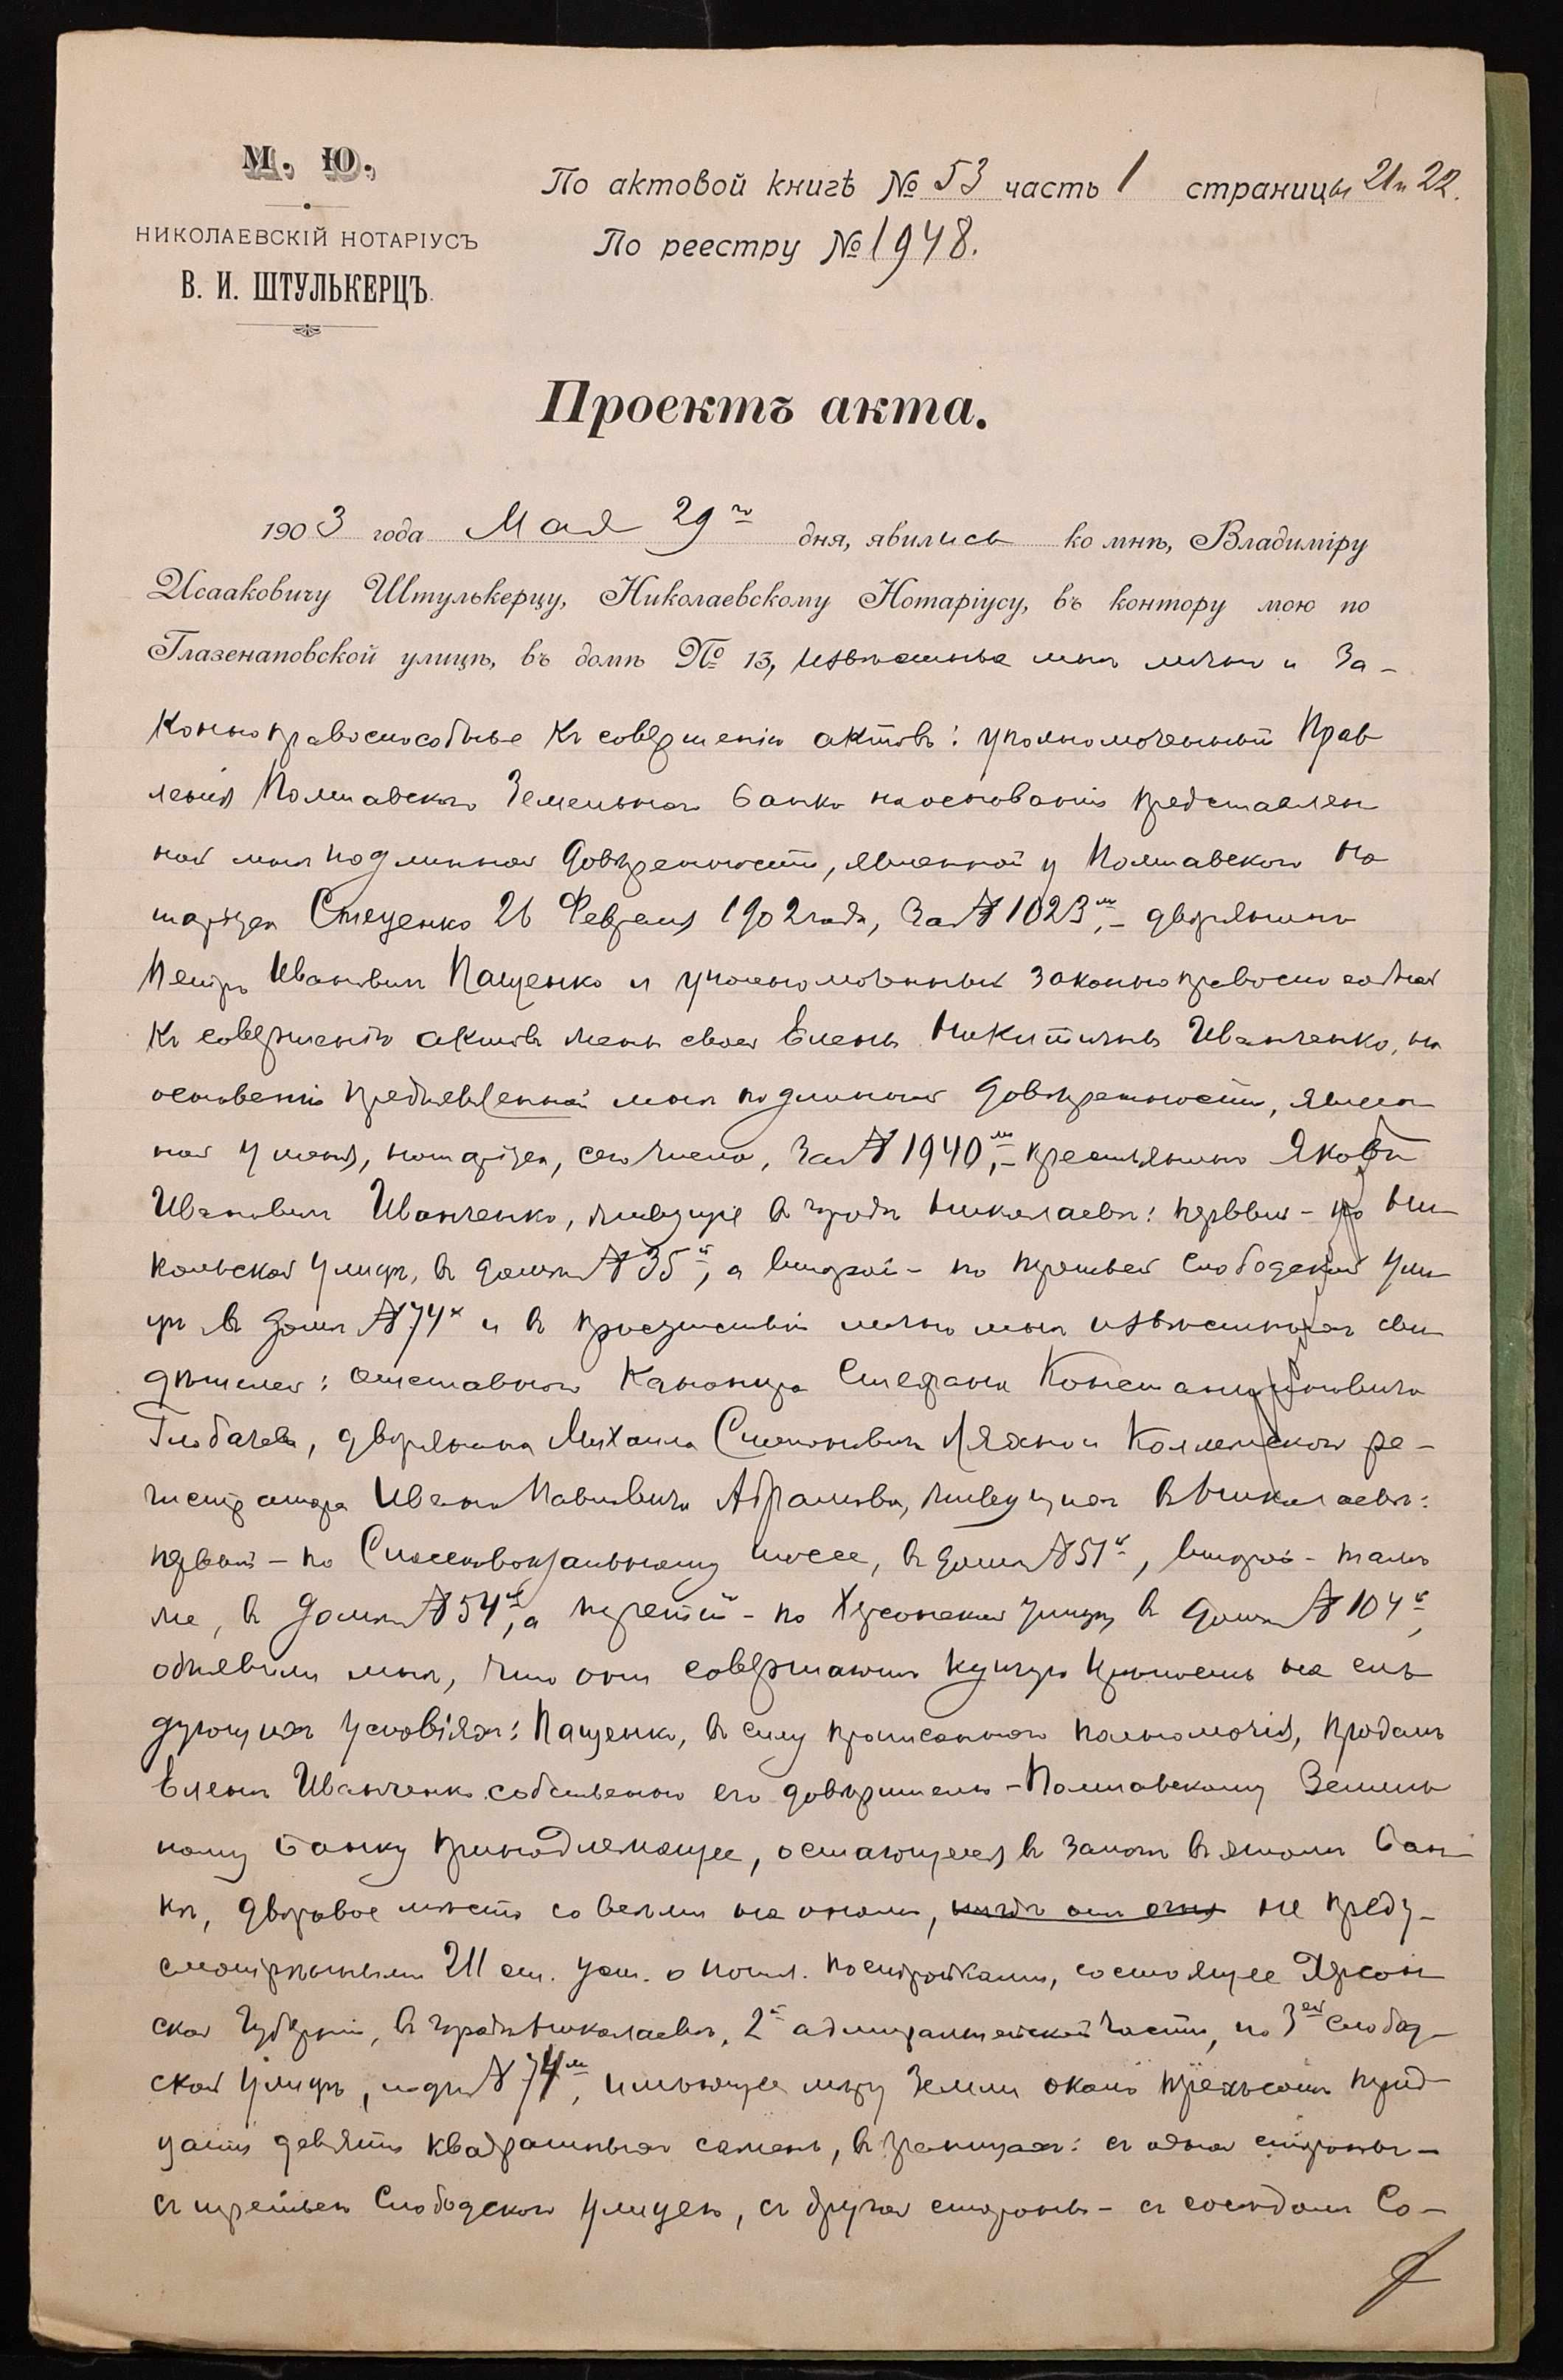 М. Ю.
НИКОЛАЕВСКІЙ НОТАРІУСЪ
В. И. ШТУЛЬКЕРЦЪ.
По актовой книгѣ № 53 часть 1 страницы 21 и 22.
По реестру № 1948.
Проектъ акта.
1903 года Мая 29го дня, явились ко мнѣ, Владиміру
Исааковичу Штулькерцу, Николаевскому Нотаріусу, въ контору мою по
Глазенаповской улицѣ, въ домѣ № 13, извѣстные мнѣ лично и за-
конно правоспособные къ совершенію актовъ: уполномоченный Прав
ленія Полтавскаго Земельнаго банка на основаніи представлен
ной мнѣ подлинной довѣренности, явленной у Полтавскаго но
таріуса Стеценко 26 Февраля 1902 года, за № 1023м,- дворянинъ
Петръ Ивановичъ Пащенко и уполномоченный законно правоспособной
къ совершенію актовъ жены своей Елены Никитичны Иванченко, на
основаніи предъявленной мнѣ подлинной довѣренности, явлен
ной у меня, нотаріуса, сего числа, за № 1940м,- крестьянинъ Яковъ
Ивановичъ Иванченко, живущіе въ городѣ Николаевѣ: первый - по Ни
кольской улицѣ, въ домѣ № 35й, а второй - по третьей Слободской ули
цѣ въ домѣ № 74х и въ присутствіи лично мнѣ извѣстныхъ сви
дѣтелей: отставного Канонира Стефана Константиновича
Глобачева, дворянина Михаила Семеновича Ляхно и Коллежскаго ре-
гистратора Ивана Павловича Абрамова, живущихъ въ Николаевѣ:
первый - по Спасскому шоссе, въ домѣ № 51й, второй - тамъ
же, въ домѣ № 54й, а третій - по Херсонской улицѣ, въ домѣ № 104й,
объявили мнѣ, что они совершаютъ купчую крѣпость на слѣ
дующихъ условіяхъ: Пащенко, въ силу прописаннаго полномочія, продалъ
Еленѣ Иванченко собственно его довѣрителю - Полтавскому Земель
ному банку принадлежащее, остающееся въ залогѣ въ этомъ бан
кѣ, дворовое мѣсто со всѣми на ономъ, не преду-
смотрѣнными 211 ст. уст. о пошл. постройками, состоящее Херсон
ской Губерніи, въ городѣ Николаевѣ, 2й адмиралтейской части, по 3ей Слобод-
ской улицѣ, подъ № 74м, имѣющее мѣру земли около трехсотъ трид
цати девяти квадратныхъ сажень, въ границахъ: съ одной стороны -
съ третьею Слободскою улицею, съ другой стороны - съ сосѣдомъ Со-